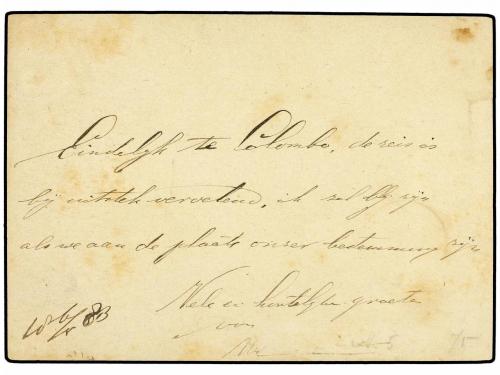 Eindelijk te Colombo, de reis is
bij uitstek vervelend, ik zal blij zijn
als we aan de plaats onzer bestemming zijn
Vele en hartelijke groeten
van